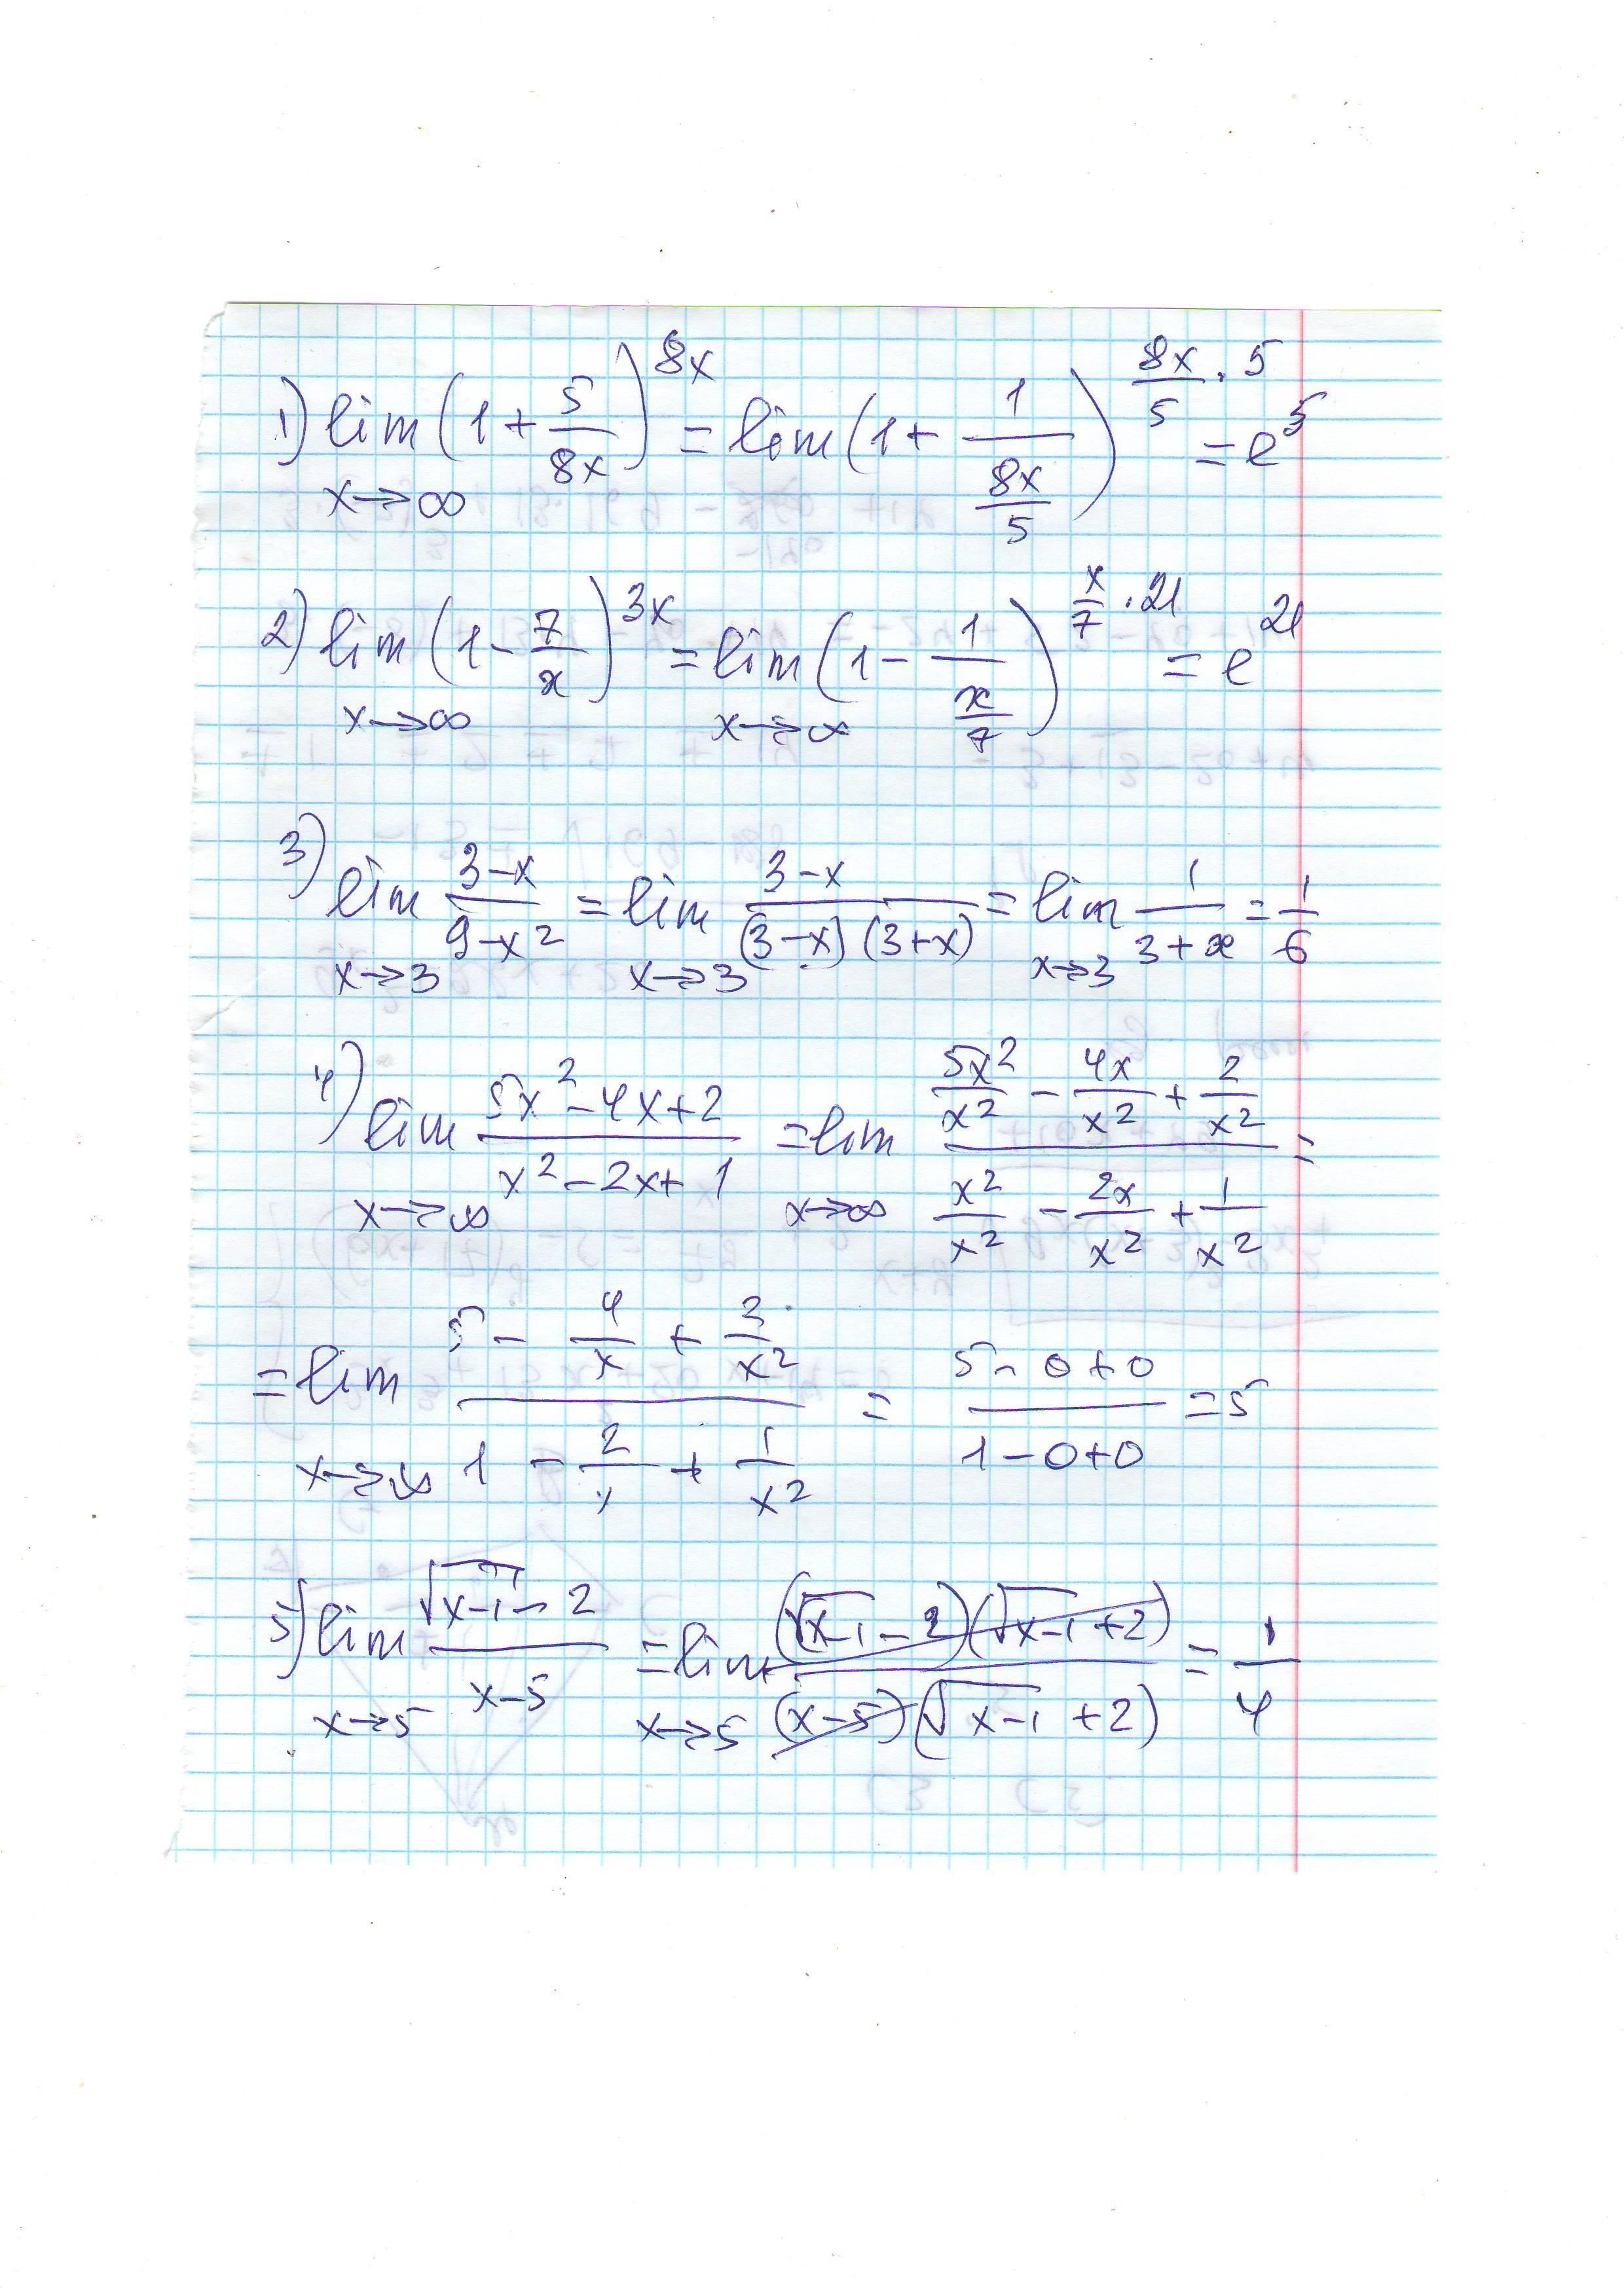 1) lim (1 + 5/8x)^8x = lim (1 + 1/(8x/5))^(8x/5 · 5) = e^5
x→∞
2) lim (1 - 7/x)^3x = lim (1 - 1/(x/7))^(x/7 · 21) = e^21
x→∞ x→∞
3) lim (3-x)/(9-x²) = lim (3-x)/((3-x)(3+x)) = lim 1/(3+x) = 1/6
x→3 x→3 x→3
4) lim (5x²-4x+2)/(x²-2x+1) = lim (5x²/x² - 4x/x² + 2/x²)/(x²/x² - 2x/x² + 1/x²) =
x→∞ x→∞
= lim (5 - 4/x + 2/x²)/(1 - 2/x + 1/x²) = (5-0+0)/(1-0+0) = 5
x→∞
5) lim (√(x-1) - 2)/(x-5) = lim ((√(x-1) - 2)(√(x-1) + 2))/((x-5)(√(x-1) + 2)) = 1/4
x→5 x→5